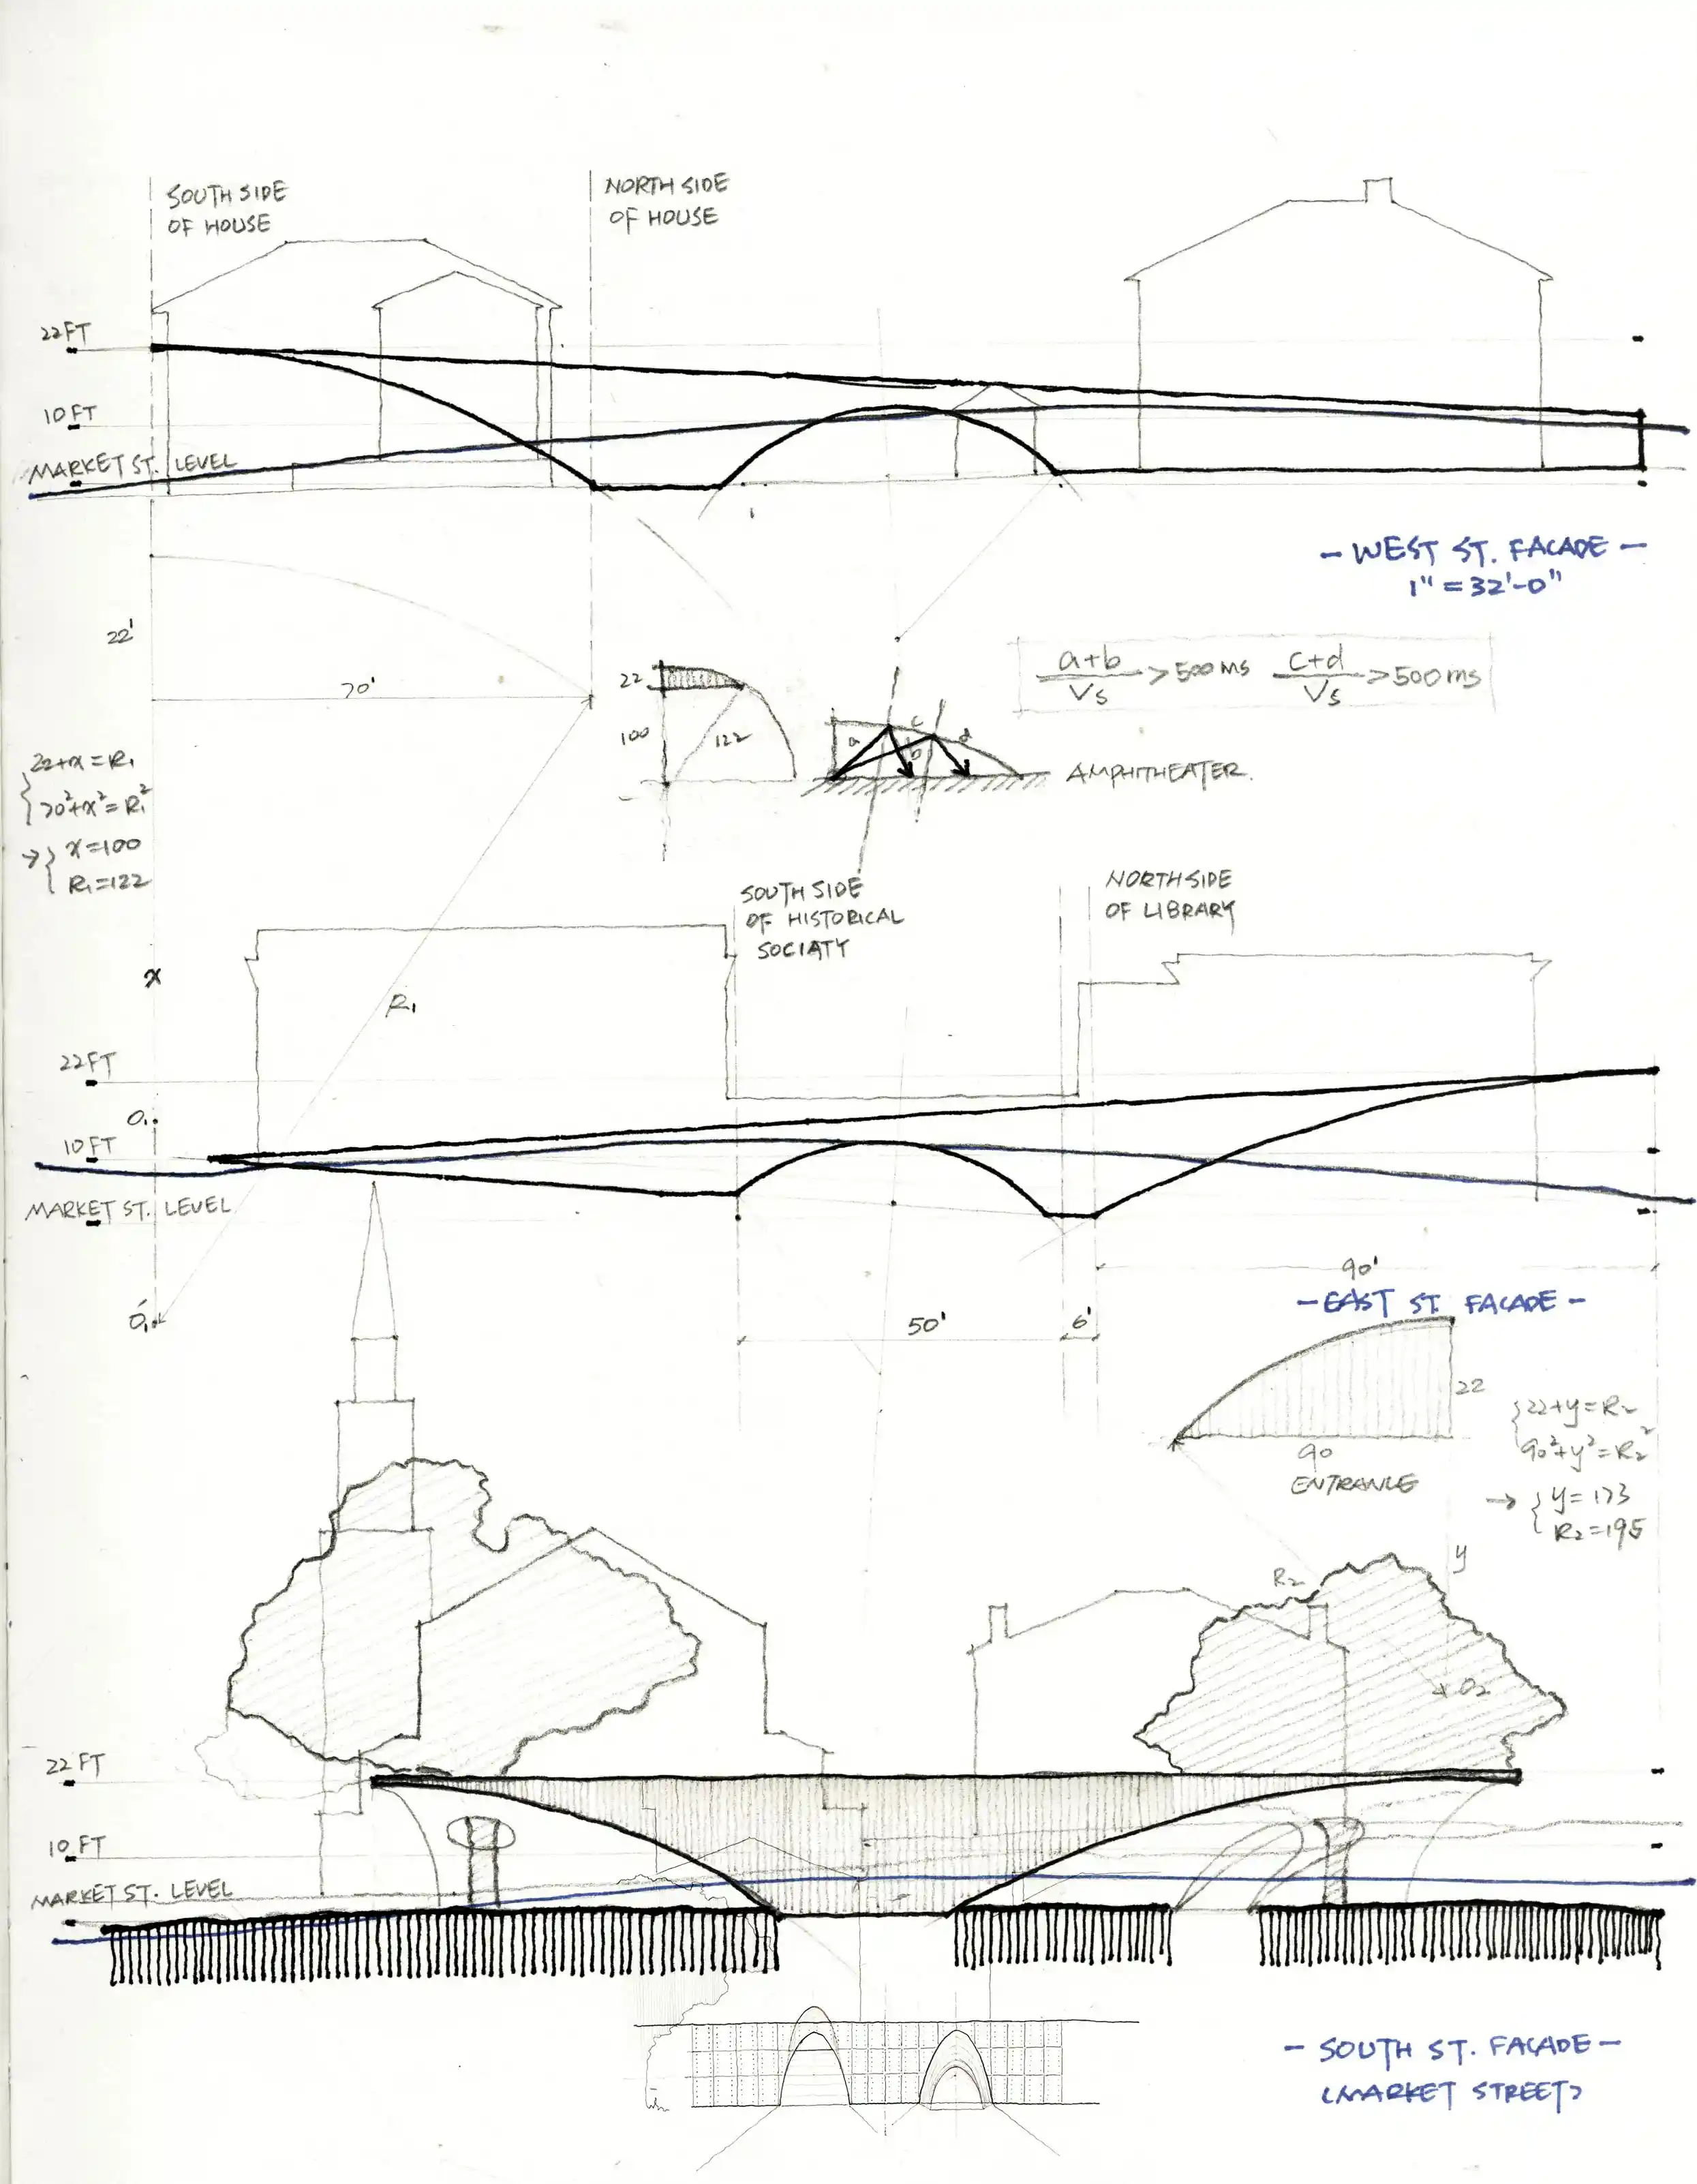 SOUTH SIDE
OF HOUSE
NORTH SIDE
OF HOUSE
22FT
10FT
MARKET ST. LEVEL
- WEST ST. FACADE -
1" = 32'-0"
22'
70'
22
100
122
a
b
c
d
AMPHITHEATER.
a+b
Vs
>500ms
c+d
Vs
>500ms
22+x=R₁
70²+x²=R₁²
→ x=100
R₁=122
x
R₁
SOUTH SIDE
OF HISTORICAL
SOCIATY
NORTH SIDE
OF LIBRARY
22FT
O₁
10FT
MARKET ST. LEVEL
O₁'
90'
- EAST ST. FACADE -
50'
6'
22
90
ENTRANCE
22+y=R₂
90²+y²=R₂²
→ y=173
R₂=195
y
R₂
O₂
22 FT
10 FT
MARKET ST. LEVEL
- SOUTH ST. FACADE -
(MARKET STREET)